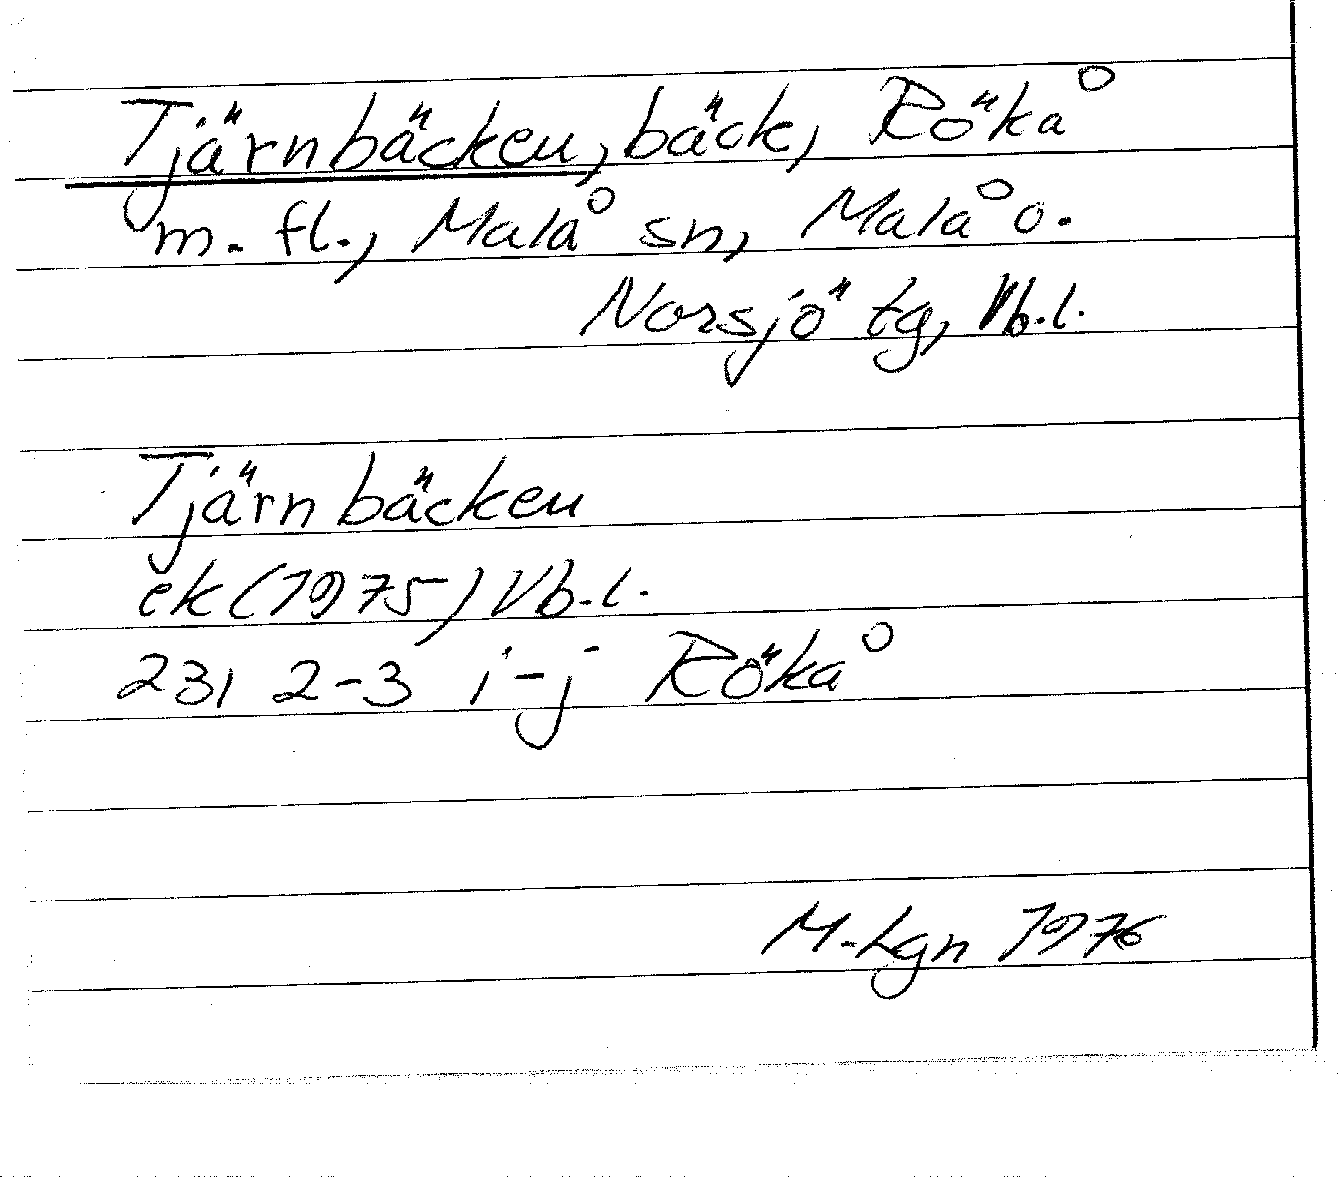 Tjärnbäcken, bäck, Rökå
m. fl., Malå sn, Malå o.
Norsjö tg, Vb.l.
Tjärnbäcken
ek (1975) Vb.l.
231 2-3 i-j Rökå
M-Lgn 1976